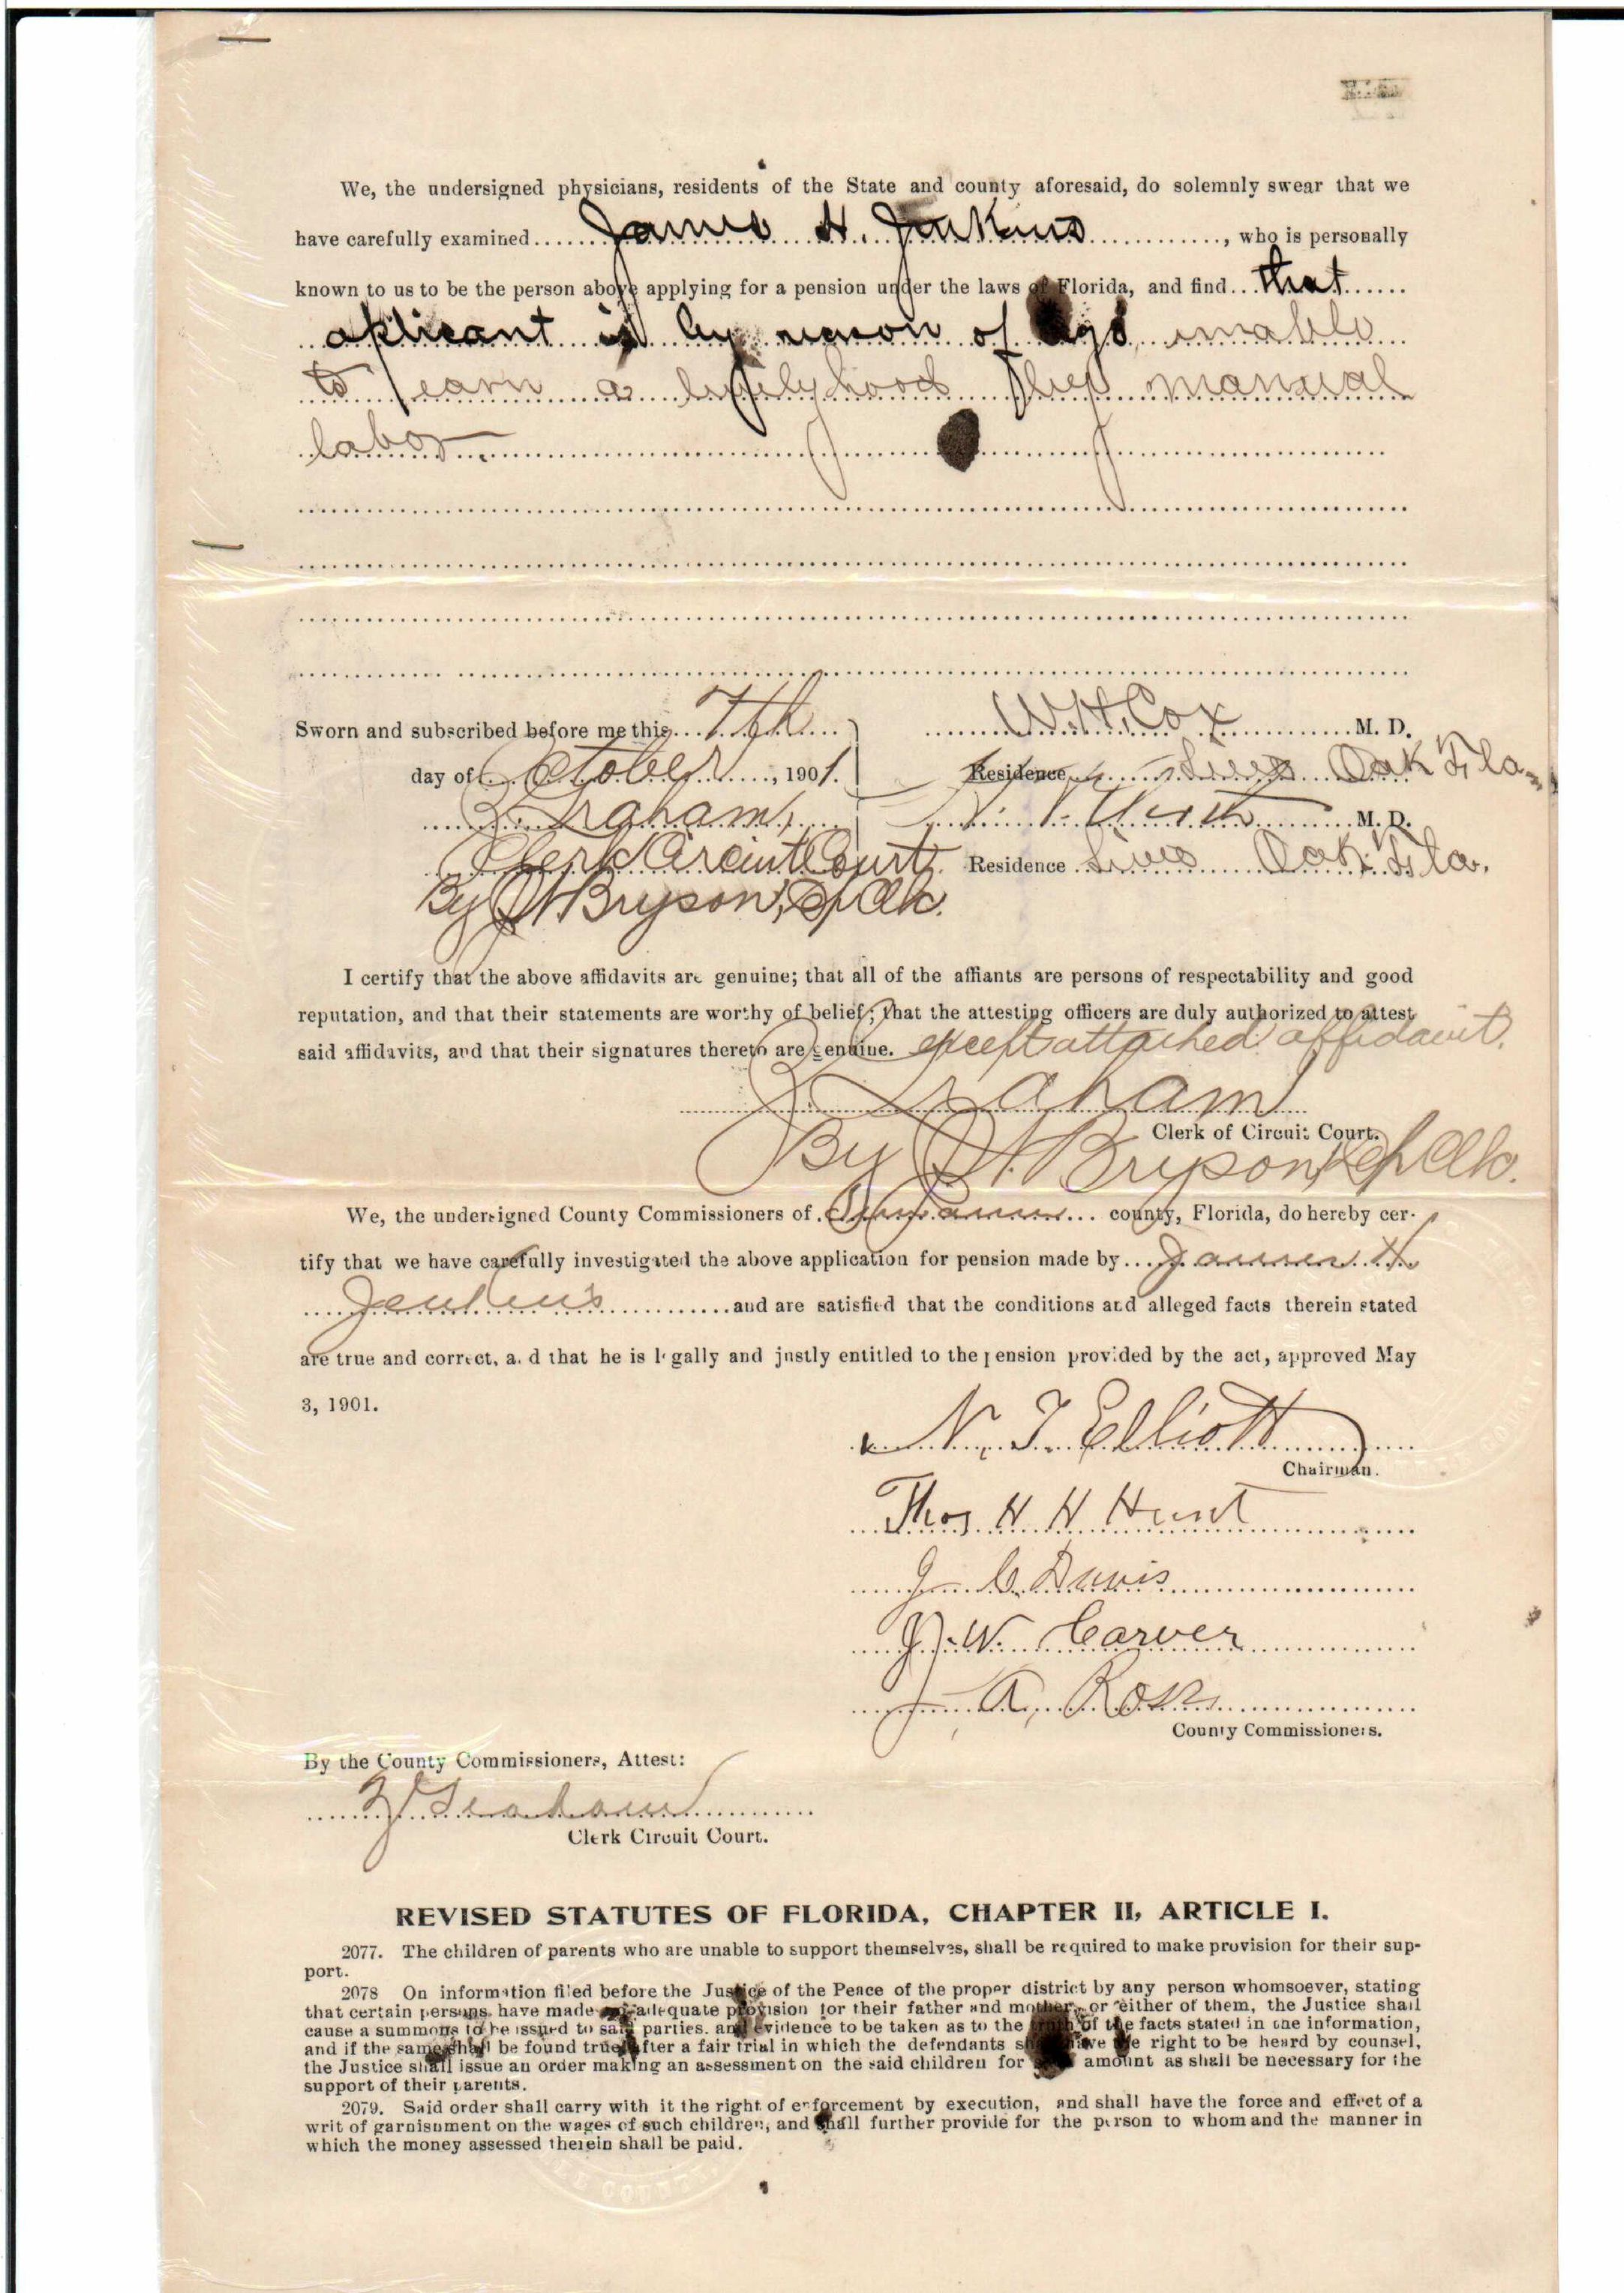 We, the undersigned physicians, residents of the State and county aforesaid, do solemnly swear that we
have carefully examined James H. Jenkins, who is personally
known to us to be the person above applying for a pension under the laws of Florida, and find that
aplicant is by reason of age unable
to earn a livelyhood by manual
labor
Sworn and subscribed before me this 7th
day of October, 1901.
Graham,
Clerk Circuit Court
By Bryson, Dp Clk.
W. H. Cox M. D.
Residence Live Oak Fla.
M. D.
Residence Live Oak Fla.
I certify that the above affidavits are genuine; that all of the affiants are persons of respectability and good
reputation, and that their statements are worthy of belief; that the attesting officers are duly authorized to attest
said affidavits, and that their signatures thereto are genuine. except attached affidavit.
Graham
Clerk of Circuit Court.
By Bryson, Dp Clk.
We, the undersigned County Commissioners of Suwannee county, Florida, do hereby cer-
tify that we have carefully investigated the above application for pension made by James H
Jenkins and are satisfied that the conditions and alleged facts therein stated
are true and correct, and that he is legally and justly entitled to the pension provided by the act, approved May
3, 1901.
N. T. Elliott
Chairman.
Thos H H Hunt
J. C. Davis
J. W. Carver
J. A. Ross
County Commissioners.
By the County Commissioners, Attest:
Graham
Clerk Circuit Court.
REVISED STATUTES OF FLORIDA, CHAPTER II, ARTICLE I.
2077. The children of parents who are unable to support themselves, shall be required to make provision for their sup-
port.
2078 On information filed before the Justice of the Peace of the proper district by any person whomsoever, stating
that certain persons have made adequate provision for their father and mother, or either of them, the Justice shall
cause a summons to be issued to said parties. and evidence to be taken as to the truth of the facts stated in the information,
and if the same shall be found true after a fair trial in which the defendants shall have the right to be heard by counsel,
the Justice shall issue an order making an assessment on the said children for amount as shall be necessary for the
support of their parents.
2079. Said order shall carry with it the right of enforcement by execution, and shall have the force and effect of a
writ of garnishment on the wages of such children, and shall further provide for the person to whom and the manner in
which the money assessed therein shall be paid.